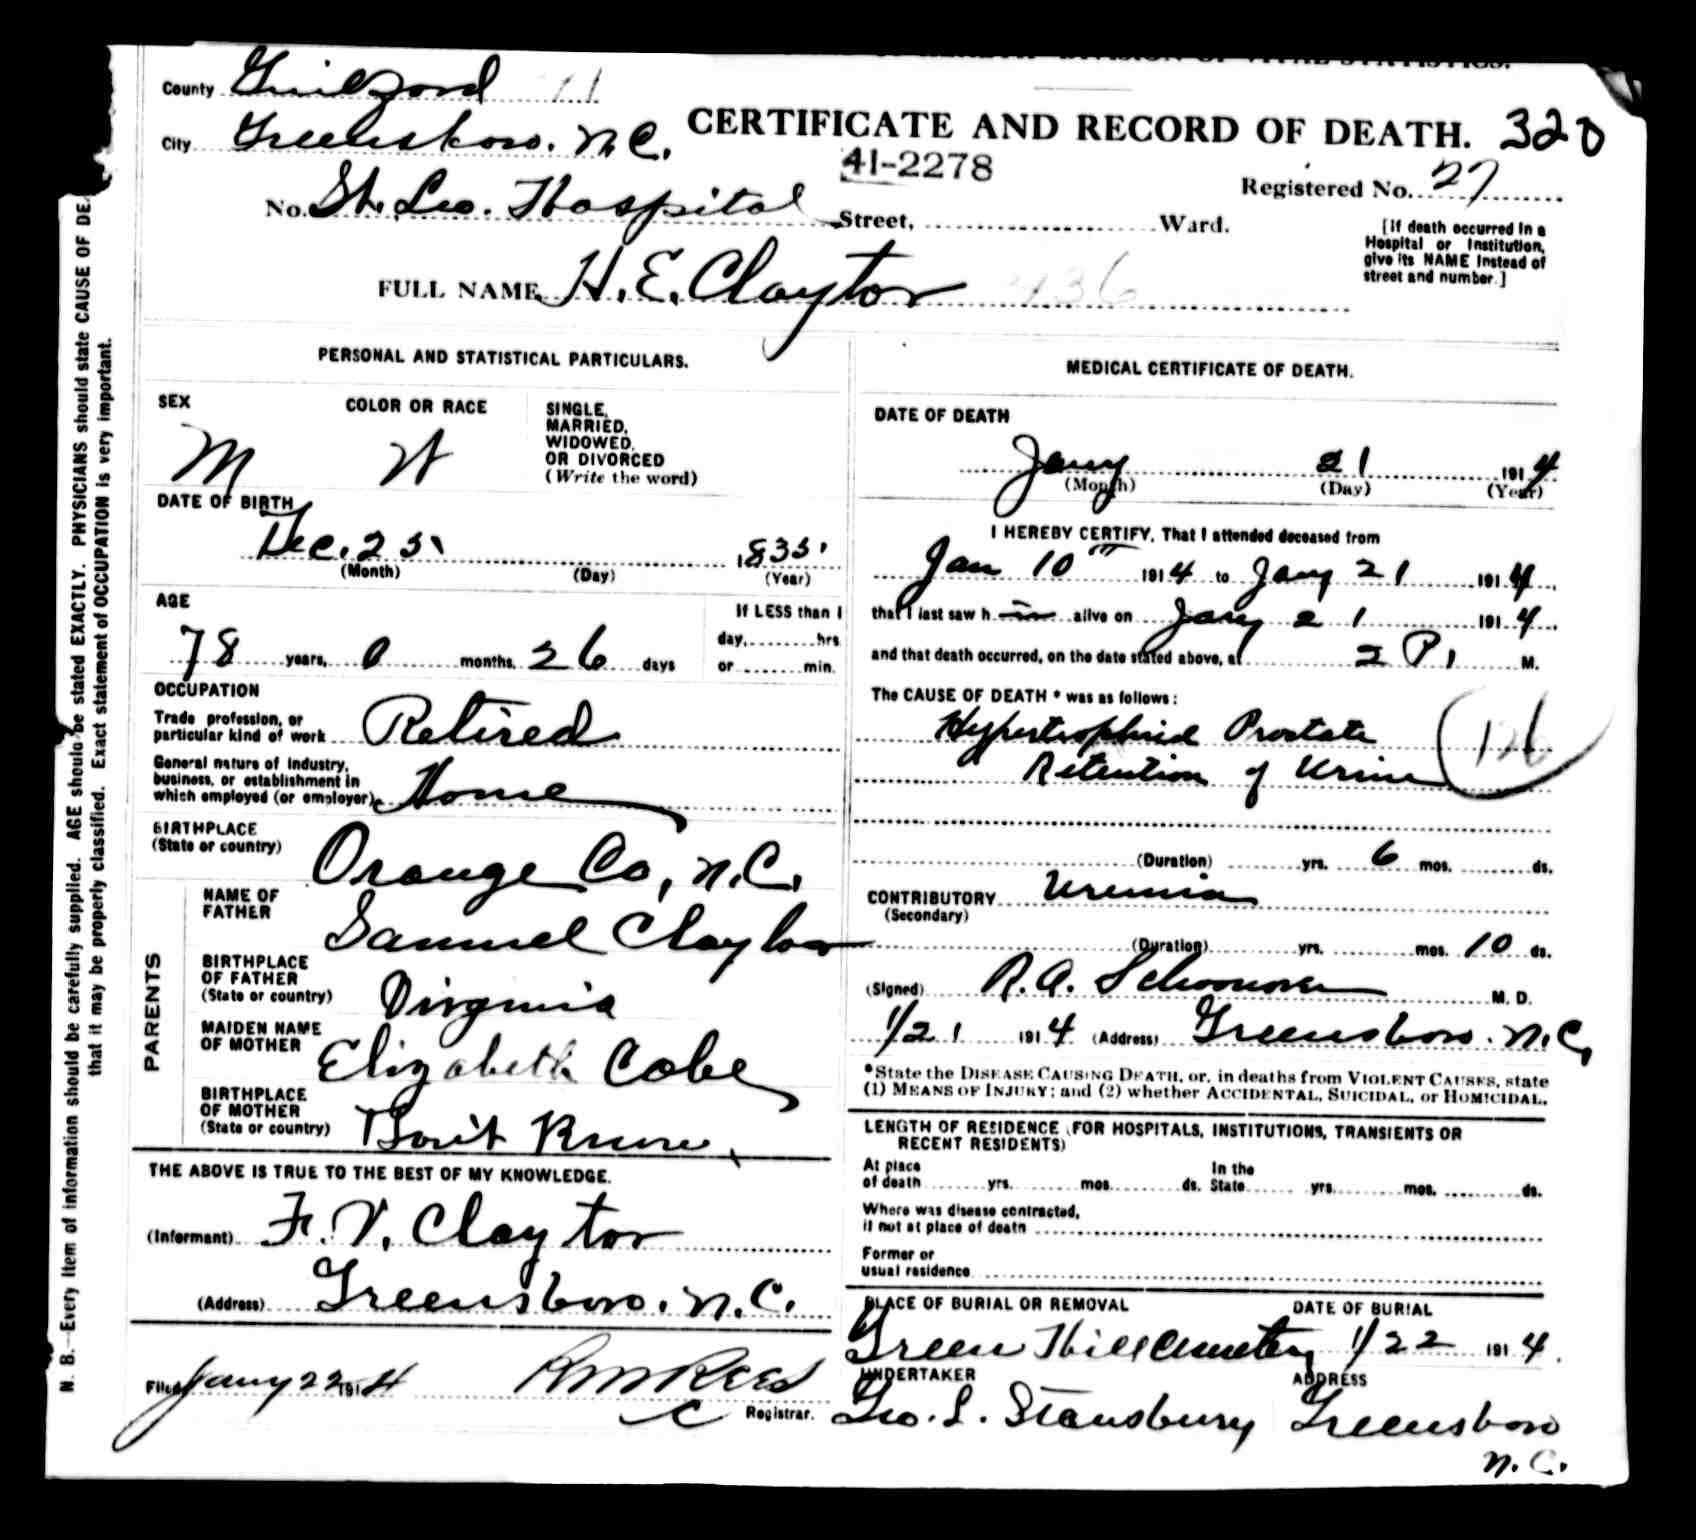 County Guilford 71
CERTIFICATE AND RECORD OF DEATH. 320
City Greensboro. N.C.
41-2278
Registered No. 27
No. St. Leo. Hospital Street, Ward.
[If death occurred in a
Hospital or Institution,
give its NAME instead of
street and number.]
FULL NAME H. E. Clayton 436
PERSONAL AND STATISTICAL PARTICULARS.
SEX
M
COLOR OR RACE
W
SINGLE,
MARRIED,
WIDOWED,
OR DIVORCED
(Write the word)
DATE OF BIRTH
Dec. 25 1835
(Month) (Day) (Year)
AGE
78 years, 0 months, 26 days
If LESS than 1
day, hrs
or min.
OCCUPATION
Trade profession, or
particular kind of work Retired
General nature of Industry,
business, or establishment in
which employed (or employer) Home
BIRTHPLACE
(State or country) Orange Co, N.C.
PARENTS
NAME OF
FATHER Samuel Clayton
BIRTHPLACE
OF FATHER
(State or country) Virginia
MAIDEN NAME
OF MOTHER Elizabeth Cobe
BIRTHPLACE
OF MOTHER
(State or country) Don't Know
THE ABOVE IS TRUE TO THE BEST OF MY KNOWLEDGE.
(Informant) F. V. Clayton
(Address) Greensboro. N.C.
Filed Jany 22 1914
Registrar.
MEDICAL CERTIFICATE OF DEATH.
DATE OF DEATH
Jany 21 1914
(Month) (Day) (Year)
I HEREBY CERTIFY, That I attended deceased from
Jan 10th 1914 to Jany 21 1914,
that I last saw h im alive on Jany 21 1914,
and that death occurred, on the date stated above, at 2 P. M.
The CAUSE OF DEATH * was as follows:
Hypertrophied Prostate 126
Retention of Urine
(Duration) yrs. 6 mos. ds.
CONTRIBUTORY Uremia
(Secondary)
(Duration) yrs. mos. 10 ds.
(Signed) R. A. Schoonover M. D.
1/21 1914 (Address) Greensboro. N.C.
*State the DISEASE CAUSING DEATH, or, in deaths from VIOLENT CAUSES, state
(1) MEANS OF INJURY; and (2) whether ACCIDENTAL, SUICIDAL, or HOMICIDAL.
LENGTH OF RESIDENCE (FOR HOSPITALS, INSTITUTIONS, TRANSIENTS OR
RECENT RESIDENTS)
At place
of death yrs. mos. ds.
In the
State yrs. mos. ds.
Where was disease contracted,
if not at place of death
Former or
usual residence
PLACE OF BURIAL OR REMOVAL
Green Hill Cemetery
DATE OF BURIAL
1/22 1914.
UNDERTAKER
Geo. L. Stansbury
ADDRESS
Greensboro
N.C.
N. B.—Every item of information should be carefully supplied. AGE should be stated EXACTLY. PHYSICIANS should state CAUSE OF DEA
that it may be properly classified. Exact statement of OCCUPATION is very important.